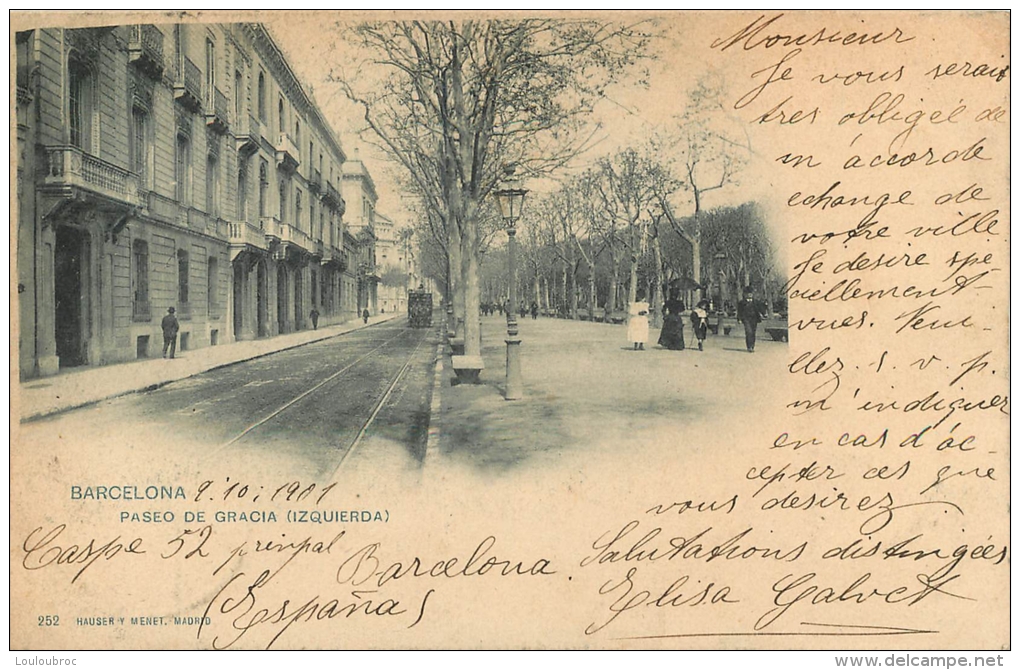 Monsieur.
Je vous serais
tres obligée de
m'accorde
echange de
votre ville.
Je desire spe-
ciellement
vues. Veui-
llez. s. v. p.
m'indiquer
en cas d'ac-
cepter ces que
vous desirez
Salutations distingées
Elisa Galvet
BARCELONA 9.10:1901
PASEO DE GRACIA (IZQUIERDA)
Caspe 52 prinpal
Barcelona.
(España)
252 HAUSER Y MENET. MADRID
Louloubroc
www.delcampe.net